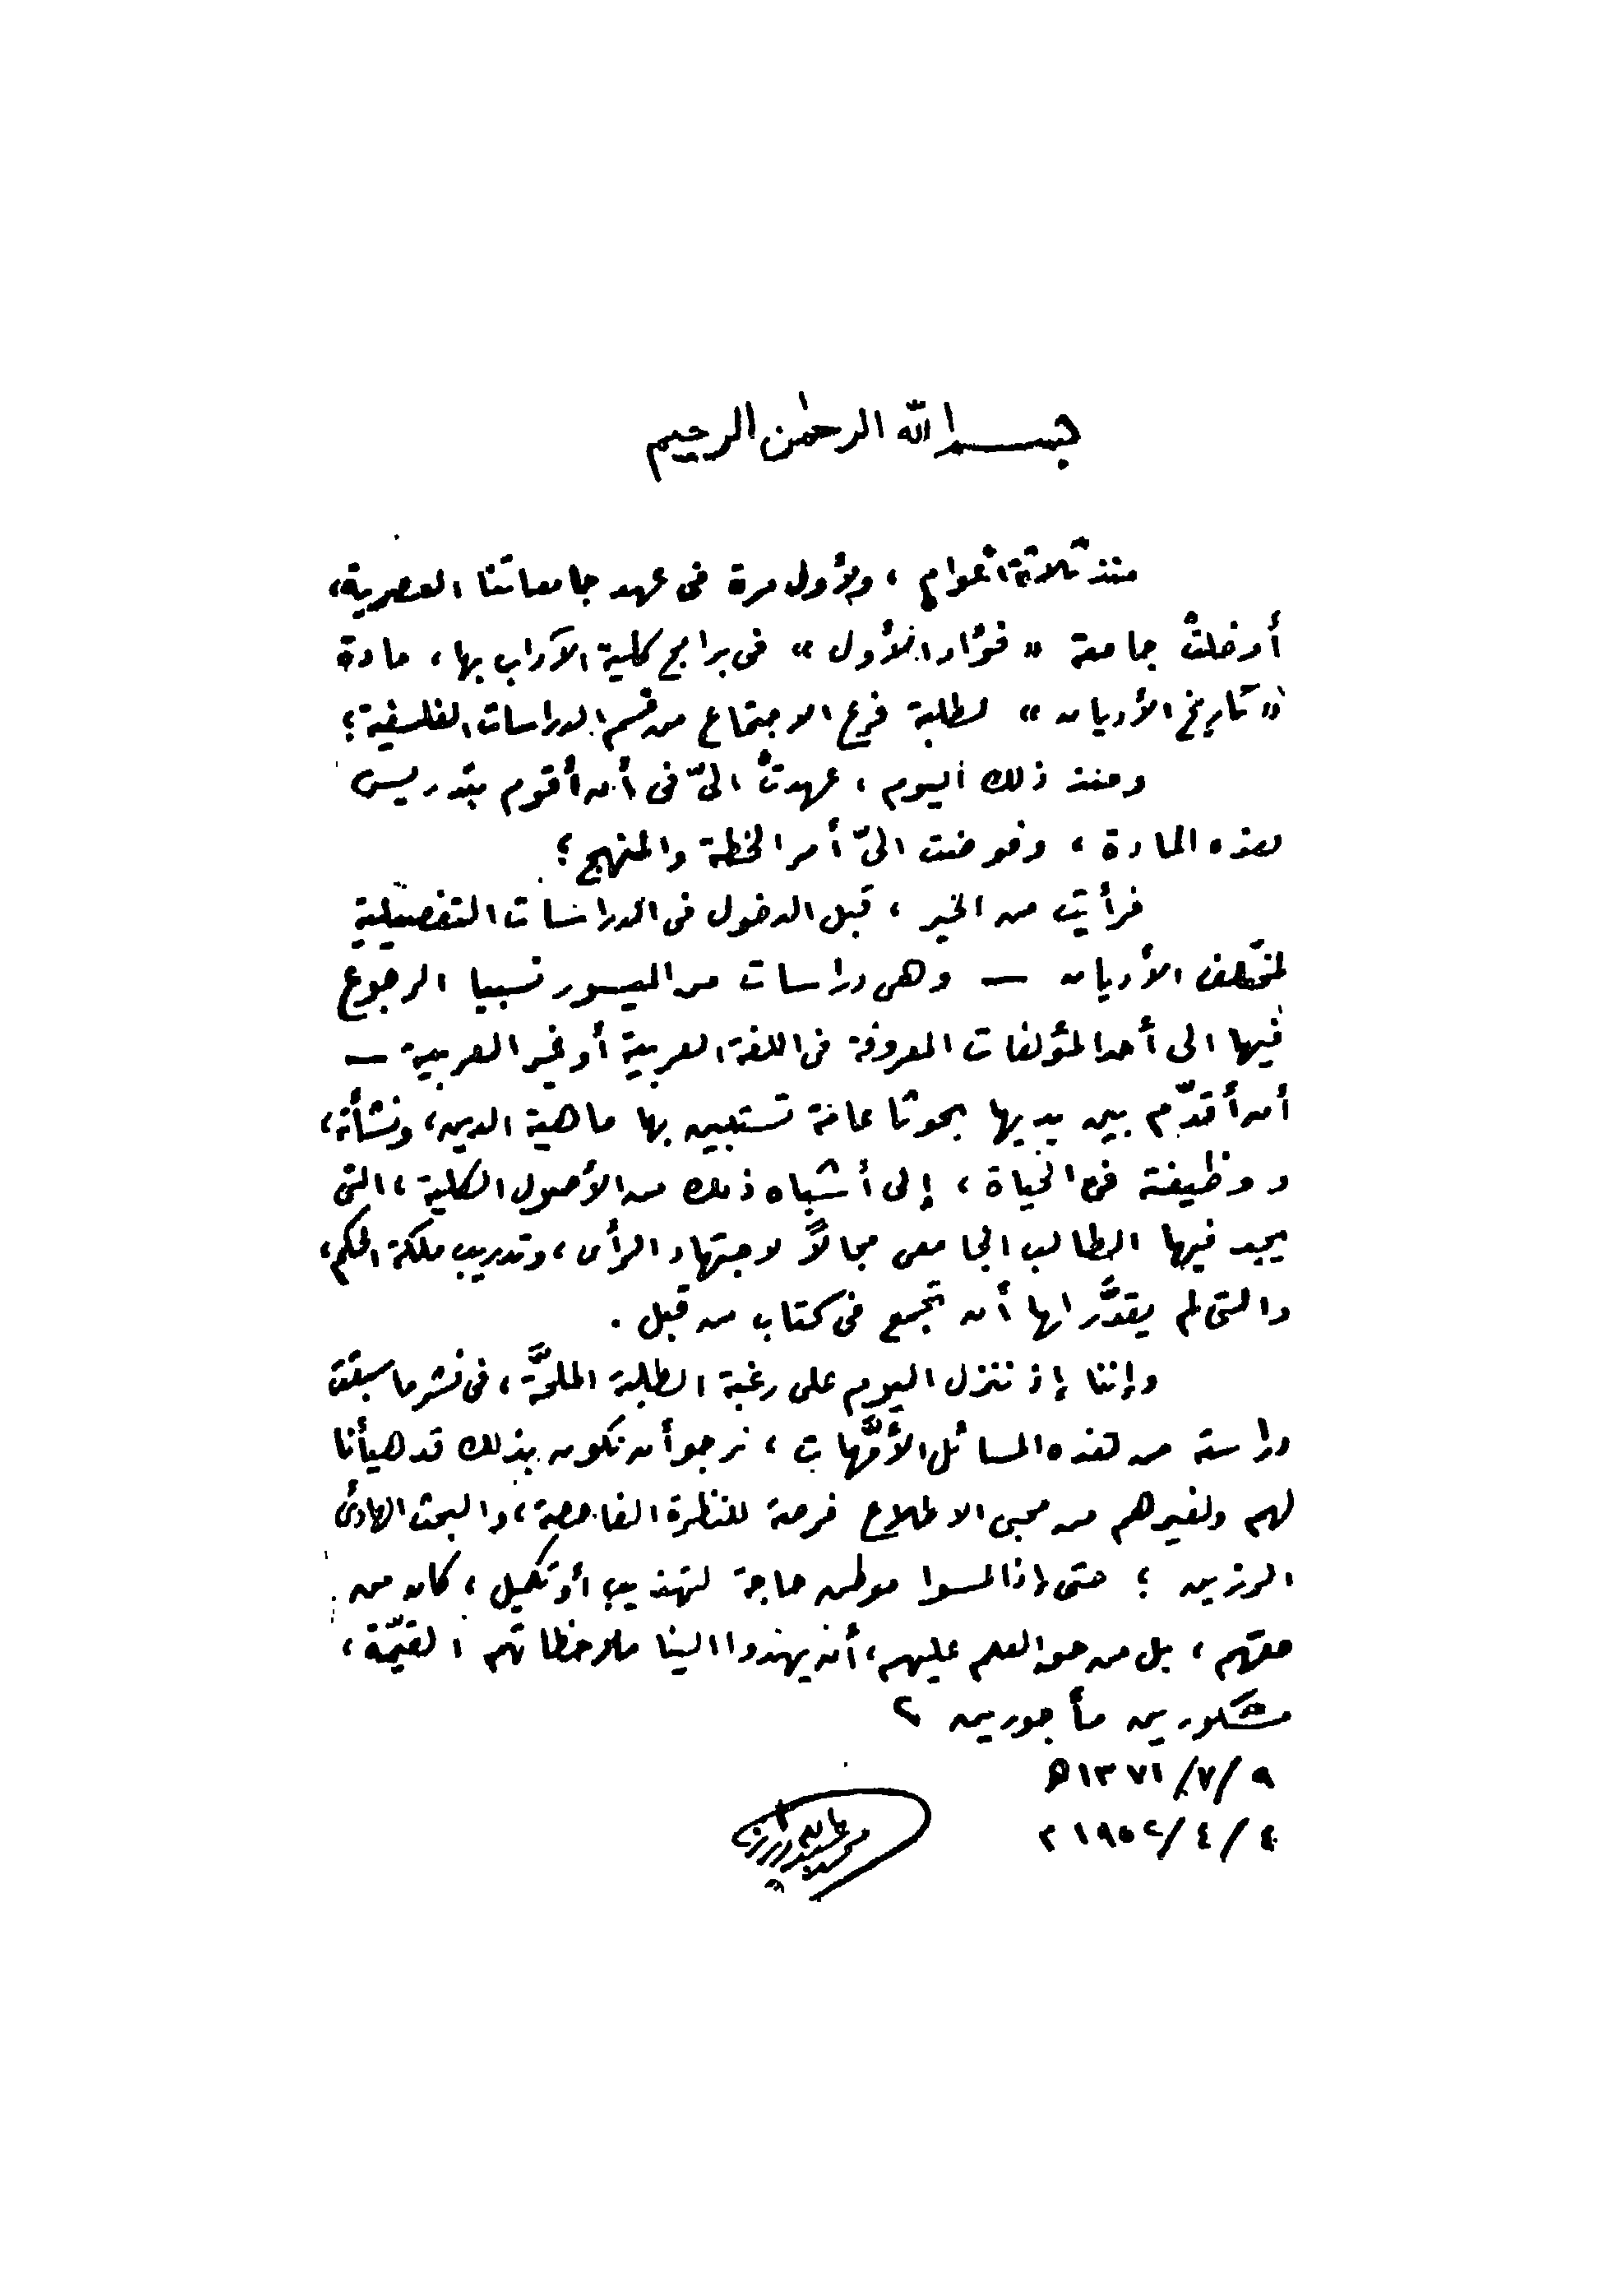 بسم الله الرحمن الرحيم
منذ ثلاثة أعوام ، ولأول مرة فى عهد جامعاتنا العصرية،
أدخلتْ جامعة « فؤاد الأول » فى برامج كلية الآداب بها، مادة
« تاريخ الأديان » لطلبة فرع الاجتماع من قسم الدراسات الفلسفية ؛
ومنذ ذلك اليوم ، عهدتْ الىّ فى أن أقوم بتدريس
هذه المادة ، وفوضت الىّ أمر الخطة والمنهج ؛
فرأيت من الخير ، قبل الدخول فى الدراسات التفصيلية
لمختلف الأديان — وهى دراسات من الميسور نسبيا الرجوع
فيها الى أحد المؤلفات المعروفة فى اللغة العربية أو غير العربية —
أن أقدّم بين يديها بحوثا عامة تستبين بها ماهية الدين، ونشأته،
ووظيفته فى الحياة ، إلى أشباه ذلك من الأصول الكلية ، التى
يجد فيها الطالب الجامعى مجالاً لاجتهاد الرأى ، وتدريب ملكة الحكم،
والتى لم يقدَّر لها أن تجمع فى كتاب من قبل .
وإننا إذ ننزل اليوم على رغبة الطلبة الملحَّة ، فى نشر ما سبقت
دراسته من هذه المسائل الأمَّهات ، نرجو أن نكون بذلك قد هيأنا
لهم ولغيرهم من محبى الاطلاع فرصة للنظرة الفاحصة ، والبحث الهادئ
الرزين ؛ حتى إذا لمسوا موطن حاجة لتهذيب أو تكميل ، كان من
حقهم ، بل من حق العلم عليهم ، أن يهدوا الينا ملاحظاتهم القيّمة ،
مشكورين مأجورين ؟
٩ / ٧ / ١٣٧١ ه
٤ / ٤ / ١٩٥٢ م
محمد عبد الله دراز